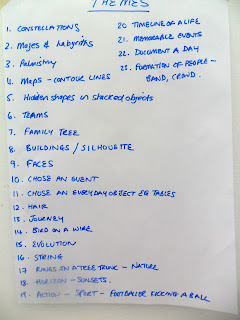 THEMES
1. CONSTELLATIONS
2. Mazes & Labyrinths
3. Palmistry
4. Maps - CONTOUR LINES
5. Hidden shapes in stacked objects
6. TEAMS
7. FAMILY TREE
8. BUILDINGS / SILHOUETTE
9. FACES
10. CHOSE AN EVENT
11. CHOSE AN EVERYDAY OBJECT EG TABLES
12. HAIR
13. JOURNEY
14. BIRD ON A WIRE
15. EVOLUTION
16. STRING
17 RINGS IN A TREE TRUNK - NATURE
18. HORIZON - SUNSETS.
19. ACTION - SPORT - FOOTBALLER KICKING A BALL
20 TIMELINE OF A LIFE
21. MEMORABLE EVENTS
22. DOCUMENT A DAY
23. FORMATION OF PEOPLE -
BAND, CROWD.